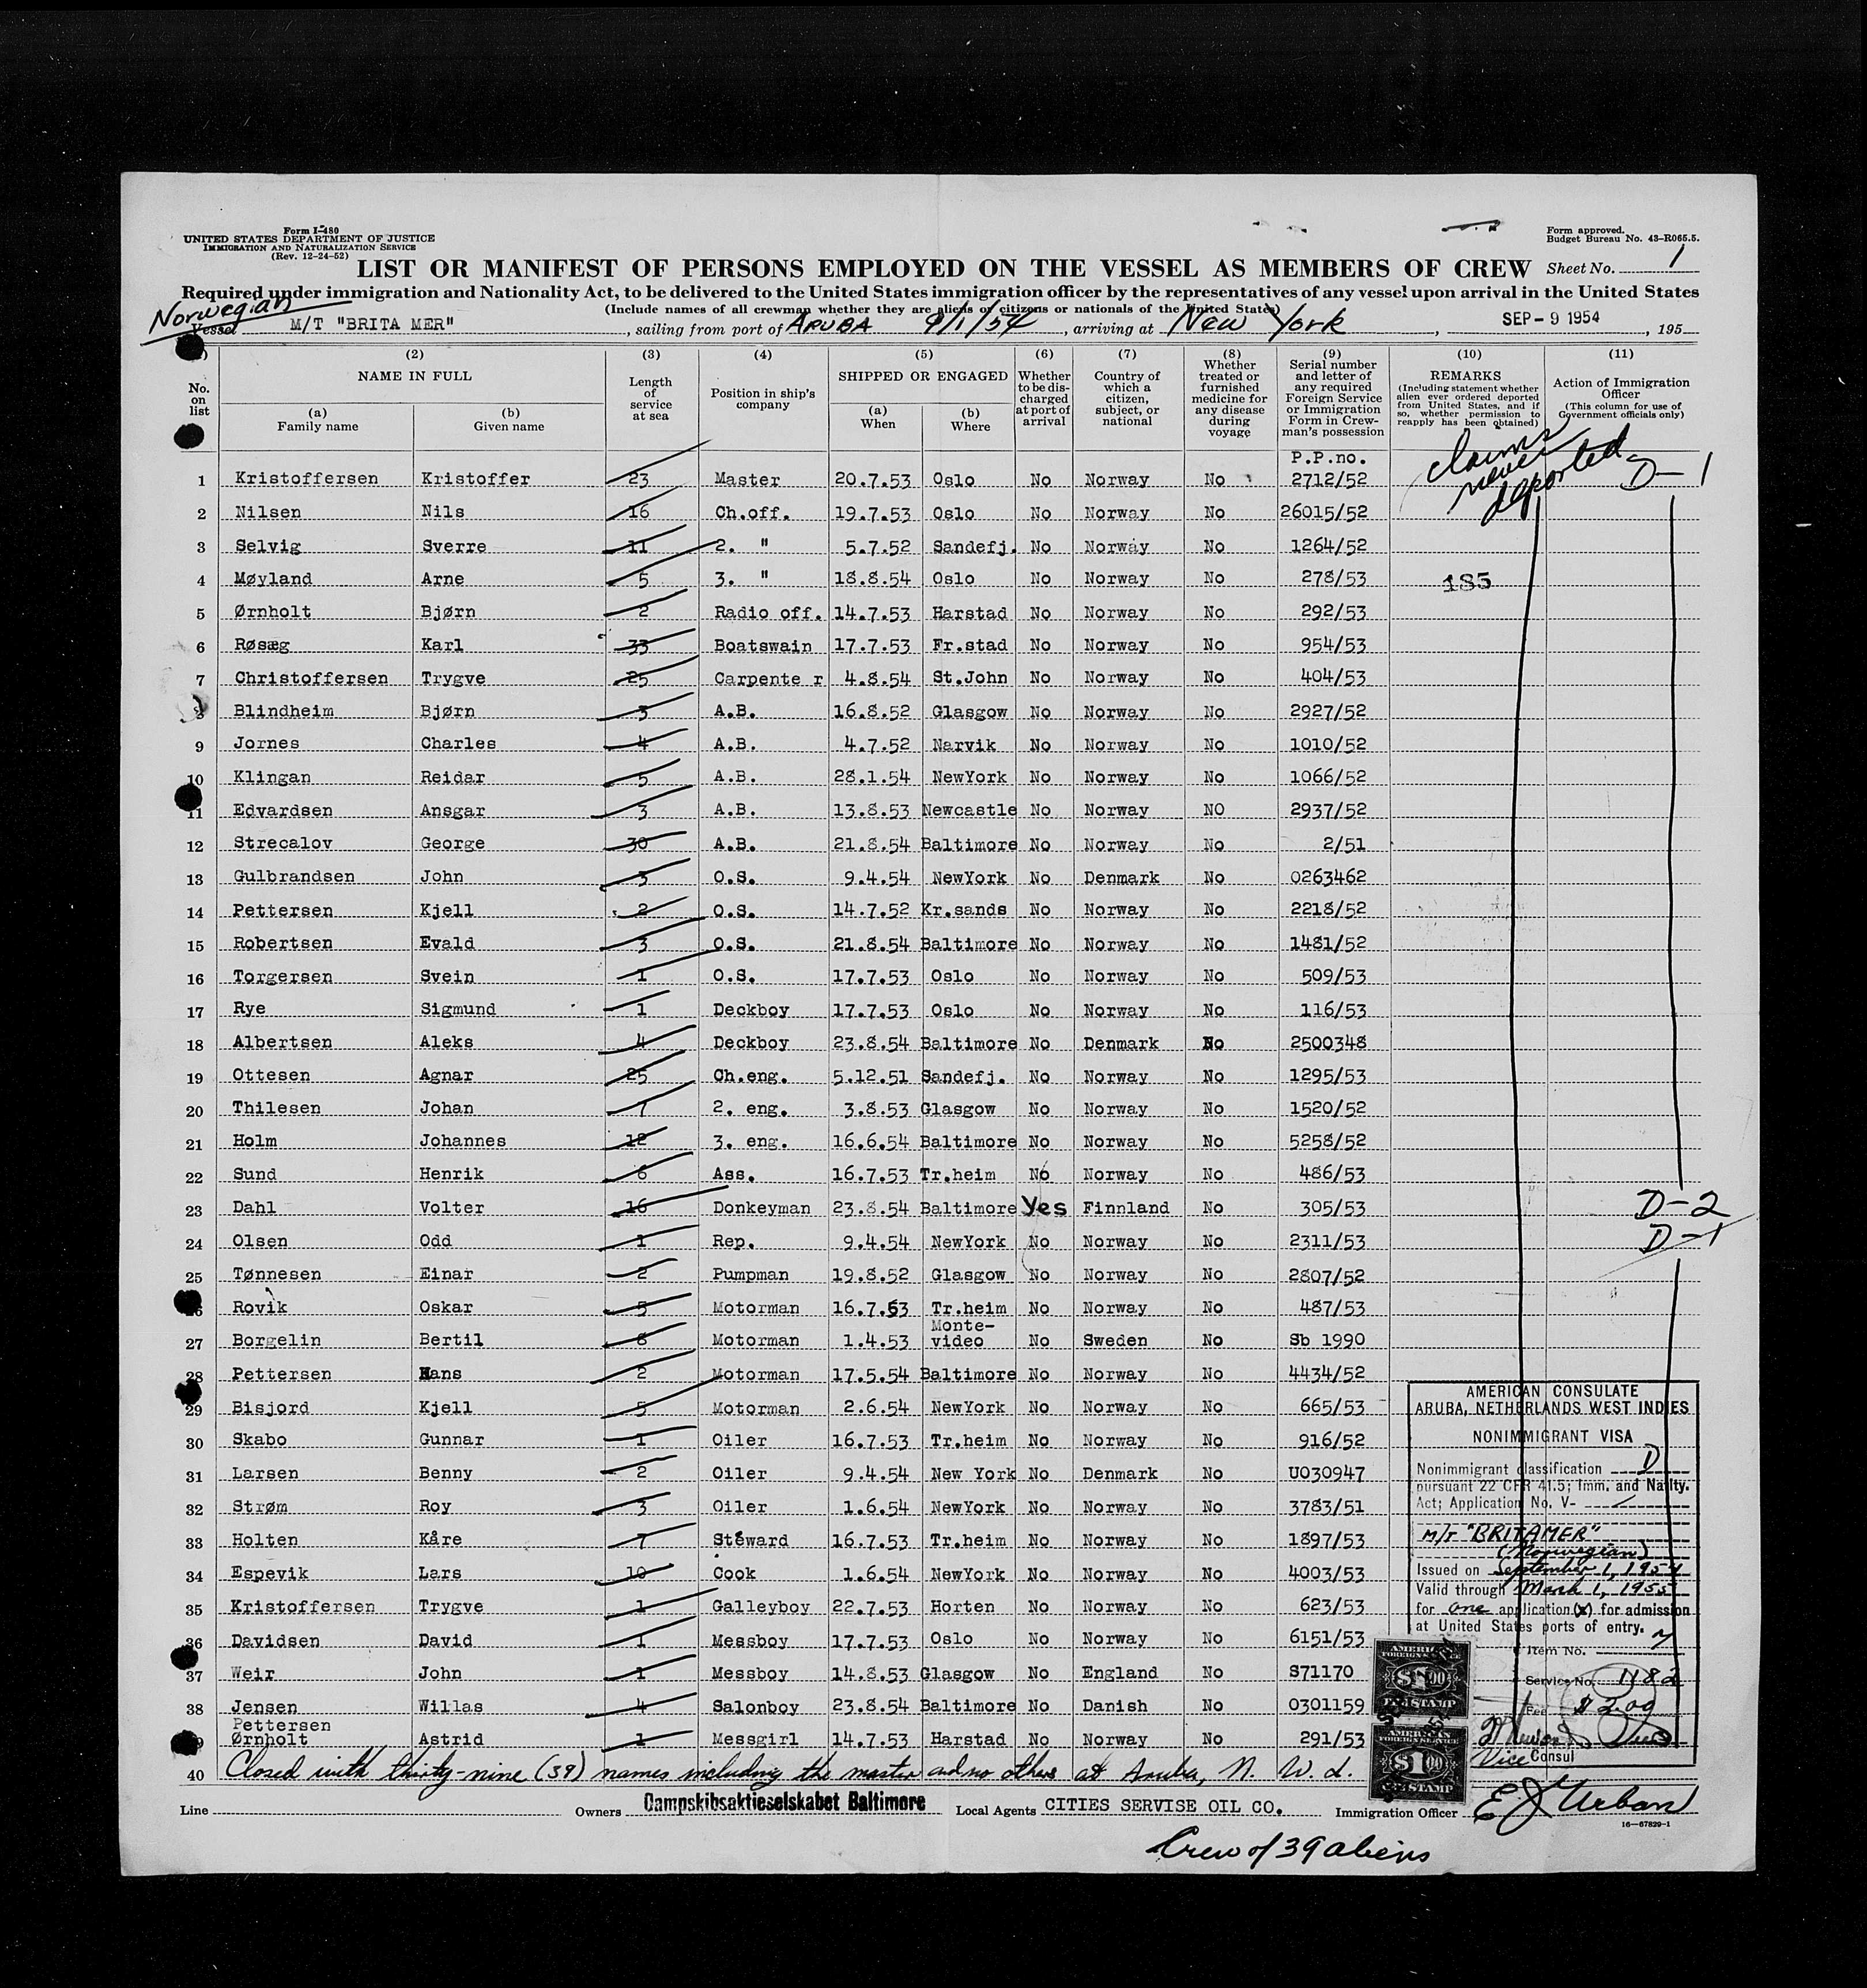 Form I-480
UNITED STATES DEPARTMENT OF JUSTICE
IMMIGRATION AND NATURALIZATION SERVICE
(Rev. 12-24-52)
Form approved.
Budget Bureau No. 43-R065.5.
LIST OR MANIFEST OF PERSONS EMPLOYED ON THE VESSEL AS MEMBERS OF CREW Sheet No. 1
Required under immigration and Nationality Act, to be delivered to the United States immigration officer by the representatives of any vessel upon arrival in the United States
(Include names of all crewman whether they are aliens or citizens or nationals of the United States)
Norwegian
Vessel M/T "BRITA MER", sailing from port of ARUBA 9/1/54, arriving at New York, SEP - 9 1954, 195
(2) (3) (4) (5) (6) (7) (8) (9) (10) (11)
No. on list
NAME IN FULL
(a) Family name
(b) Given name
Length of service at sea
Position in ship's company
SHIPPED OR ENGAGED
(a) When
(b) Where
Whether to be discharged at port of arrival
Country of which a citizen, subject, or national
Whether treated or furnished medicine for any disease during voyage
Serial number and letter of any required Foreign Service or Immigration Form in Crewman's possession
REMARKS
(Including statement whether alien ever ordered deported from United States, and if so, whether permission to reapply has been obtained)
Action of Immigration Officer
(This column for use of Government officials only)
P.P.no.
claims never deported
1 Kristoffersen Kristoffer 23 Master 20.7.53 Oslo No Norway No 2712/52 D-1
2 Nilsen Nils 16 Ch.off. 19.7.53 Oslo No Norway No 26015/52
3 Selvig Sverre 11 2. " 5.7.52 Sandefj. No Norway No 1264/52
4 Møyland Arne 5 3. " 18.8.54 Oslo No Norway No 278/53 185
5 Ørnholt Bjørn 2 Radio off. 14.7.53 Harstad No Norway No 292/53
6 Røsæg Karl 33 Boatswain 17.7.53 Fr.stad No Norway No 954/53
7 Christoffersen Trygve 25 Carpente r 4.8.54 St.John No Norway No 404/53
8 Blindheim Bjørn 3 A.B. 16.8.52 Glasgow No Norway No 2927/52
9 Jornes Charles 4 A.B. 4.7.52 Narvik No Norway No 1010/52
10 Klingan Reidar 5 A.B. 28.1.54 NewYork No Norway No 1066/52
11 Edvardsen Ansgar 3 A.B. 13.8.53 Newcastle No Norway NO 2937/52
12 Strecalov George 30 A.B. 21.8.54 Baltimore No Norway No 2/51
13 Gulbrandsen John 3 O.S. 9.4.54 NewYork No Denmark No 0263462
14 Pettersen Kjell 2 O.S. 14.7.52 Kr.sands No Norway No 2218/52
15 Robertsen Evald 3 O.S. 21.8.54 Baltimore No Norway No 1481/52
16 Torgersen Svein 1 O.S. 17.7.53 Oslo No Norway No 509/53
17 Rye Sigmund 1 Deckboy 17.7.53 Oslo No Norway No 116/53
18 Albertsen Aleks 4 Deckboy 23.8.54 Baltimore No Denmark No 2500348
19 Ottesen Agnar 25 Ch.eng. 5.12.51 Sandefj. No Norway No 1295/53
20 Thilesen Johan 7 2. eng. 3.8.53 Glasgow No Norway No 1520/52
21 Holm Johannes 12 3. eng. 16.6.54 Baltimore No Norway No 5258/52
22 Sund Henrik 6 Ass. 16.7.53 Tr.heim No Norway No 486/53
23 Dahl Volter 16 Donkeyman 23.8.54 Baltimore Yes Finnland No 305/53 D-2
24 Olsen Odd 1 Rep. 9.4.54 NewYork No Norway No 2311/53 D-1
25 Tønnesen Einar 2 Pumpman 19.8.52 Glasgow No Norway No 2807/52
26 Rovik Oskar 5 Motorman 16.7.53 Tr.heim No Norway No 487/53
27 Borgelin Bertil 8 Motorman 1.4.53 Monte-video No Sweden No Sb 1990
28 Pettersen Hans 2 Motorman 17.5.54 Baltimore No Norway No 4434/52
29 Bisjord Kjell 5 Motorman 2.6.54 NewYork No Norway No 665/53
30 Skabo Gunnar 1 Oiler 16.7.53 Tr.heim No Norway No 916/52
31 Larsen Benny 2 Oiler 9.4.54 New York No Denmark No U030947
32 Strøm Roy 3 Oiler 1.6.54 NewYork No Norway No 3783/51
33 Holten Kåre 7 Steward 16.7.53 Tr.heim No Norway No 1897/53
34 Espevik Lars 10 Cook 1.6.54 NewYork No Norway No 4003/53
35 Kristoffersen Trygve 1 Galleyboy 22.7.53 Horten No Norway No 623/53
36 Davidsen David 1 Messboy 17.7.53 Oslo No Norway No 6151/53
37 Weir John 1 Messboy 14.8.53 Glasgow No England No S71170
38 Jensen Willas 4 Salonboy 23.8.54 Baltimore No Danish No 0301159
39 Pettersen Ørnholt Astrid 1 Messgirl 14.7.53 Harstad No Norway No 291/53
40 Closed with thirty-nine (39) names including the master and no others at Aruba, N. W. I.
AMERICAN CONSULATE
ARUBA, NETHERLANDS WEST INDIES
NONIMMIGRANT VISA
Nonimmigrant classification D
pursuant 22 CFR 41.5; Imm. and Natlty.
Act; Application No. V-
M/T "BRITAMER"
(Norwegian)
Issued on September 1, 1954
Valid through March 1, 1955
for one application(s) for admission
at United States ports of entry.
Item No. 7
Service No. 1182
Fee $2.00
Vice Consul
AMERICAN
FOREIGN SERVICE
$1.00
FEE STAMP
AMERICAN
FOREIGN SERVICE
$1.00
FEE STAMP
Line Owners Dampskibsaktieselskabet Baltimore Local Agents CITIES SERVISE OIL CO. Immigration Officer E J Urban
16-67829-1
Crew of 39 aliens